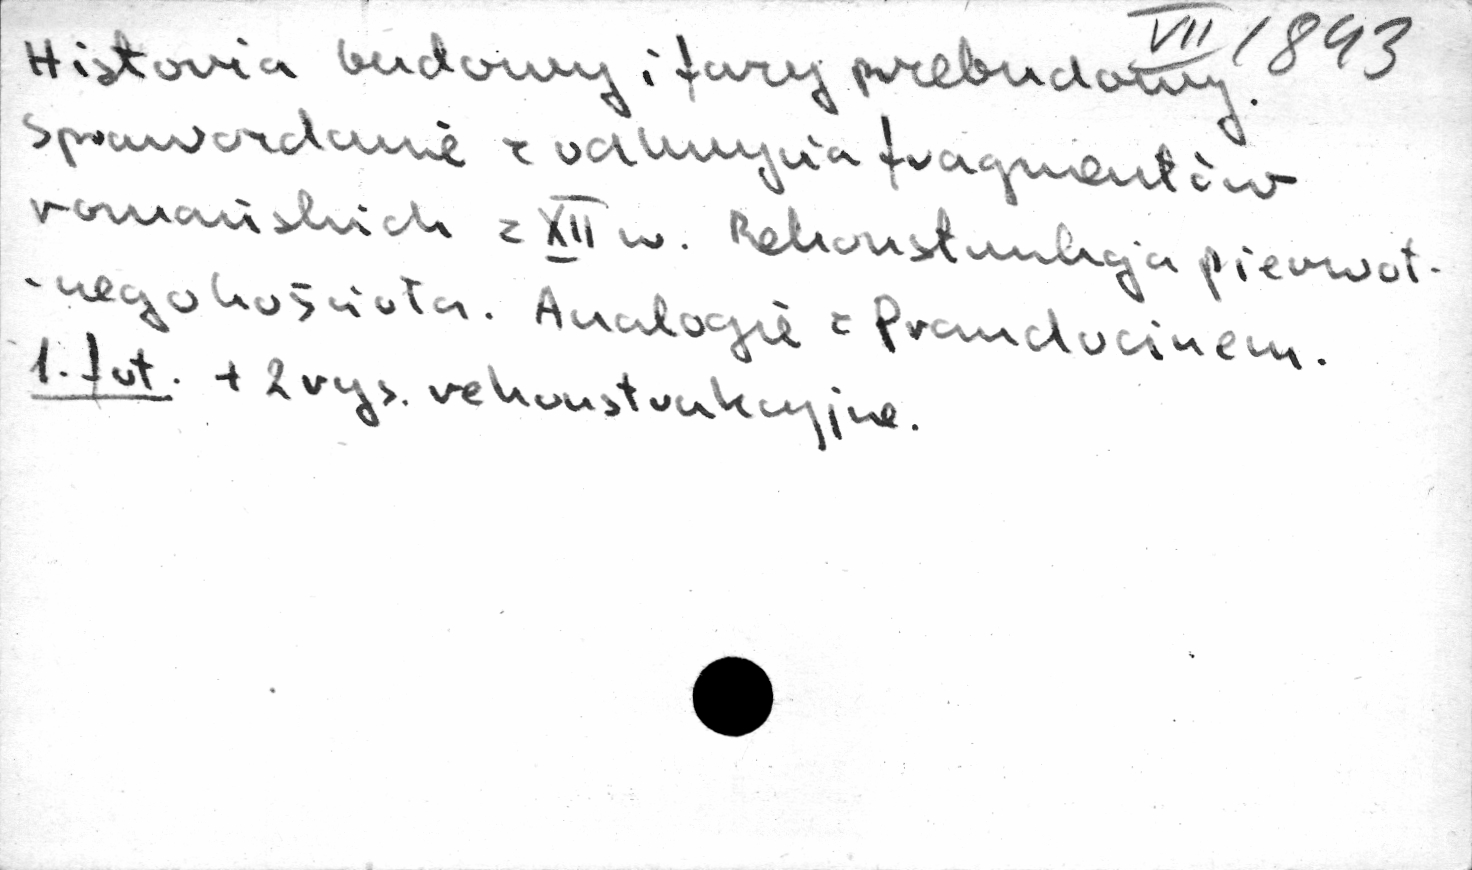 VII/1843
Historia budowy i fazy przebudowy.
Sprawozdanie z odkrycia fragmentów
romańskich z XII w. Rekonstrukcja pierwot-
-nego kościoła. Analogie z Prandocinem.
1. fot. + 2 rys. rekonstrukcyjne.